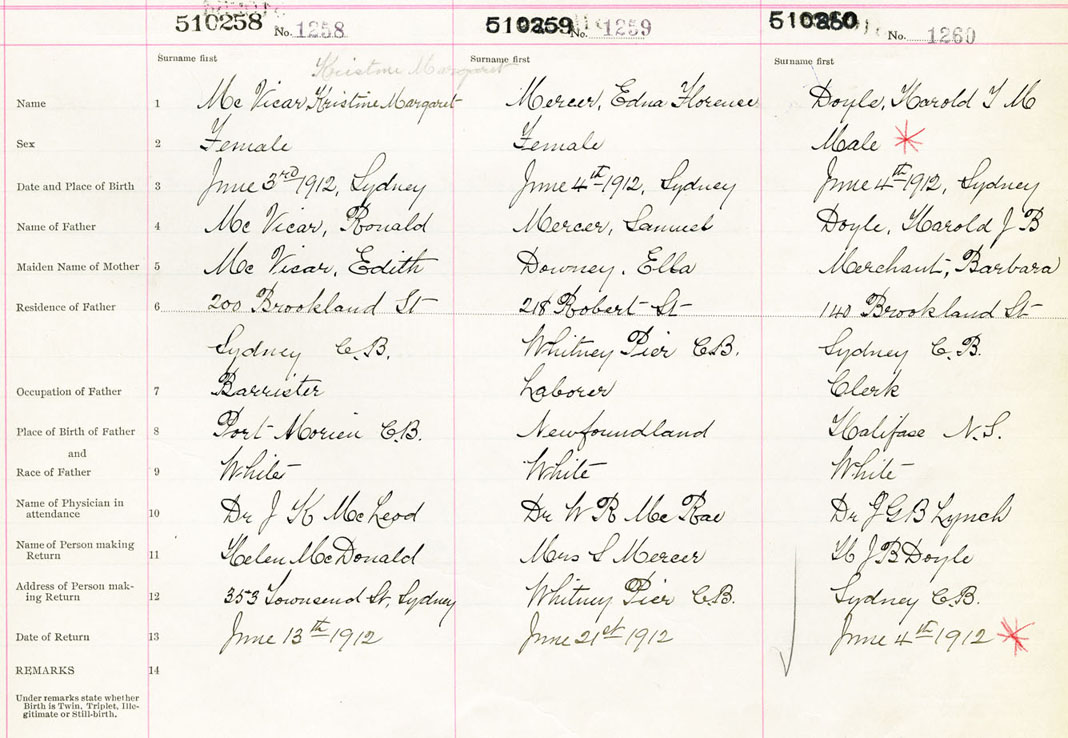 510258 No. 1258 510259 No. 1259 510260 No. 1260
Surname first Surname first Surname first
Kristine Margaret
Name 1 Mc Vicar, Kristine Margaret Mercer, Edna Florence Doyle, Harold T M
Sex 2 Female Female Male
Date and Place of Birth 3 June 3rd 1912, Sydney June 4th 1912, Sydney June 4th 1912, Sydney
Name of Father 4 Mc Vicar, Ronald Mercer, Samuel Doyle, Harold J B
Maiden Name of Mother 5 Mc Vicar, Edith Downey, Ella Merchant, Barbara
Residence of Father 6 200 Brookland St 218 Robert St 140 Brookland St
Sydney C.B. Whitney Pier C.B. Sydney C.B.
Occupation of Father 7 Barrister Laborer Clerk
Place of Birth of Father 8 Port Morien C.B. Newfoundland Halifax N.S.
and
Race of Father 9 White White White
Name of Physician in attendance 10 Dr J K McLeod Dr W R Mc Rae Dr J G B Lynch
Name of Person making Return 11 Helen McDonald Mrs S Mercer H J B Doyle
Address of Person mak-
ing Return 12 353 Townsend St, Sydney Whitney Pier C.B. Sydney C.B.
Date of Return 13 June 13th 1912 June 21st 1912 June 4th 1912
REMARKS 14
Under remarks state whether
Birth is Twin, Triplet, Ille-
gitimate or Still-birth.